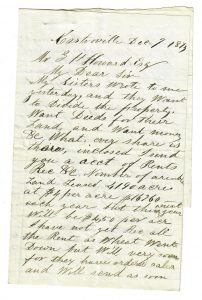 Dec. 9
Esq
My Dear Sir
My Sisters Wrote to me
yesterday, and they Want
to Divide the property.
Want Deeds for their
Land, and Want money
&c What ever share is
theirs, inclosed I send
you a acct of Rents
Rec &c Number of acres
Land Leased 4190 acres
at per acre
each year but this
Will be per acre
I have not yet Rec all
the Rent as Wheat Went
Down but Will very soon
for they have orders
and Will send as soon